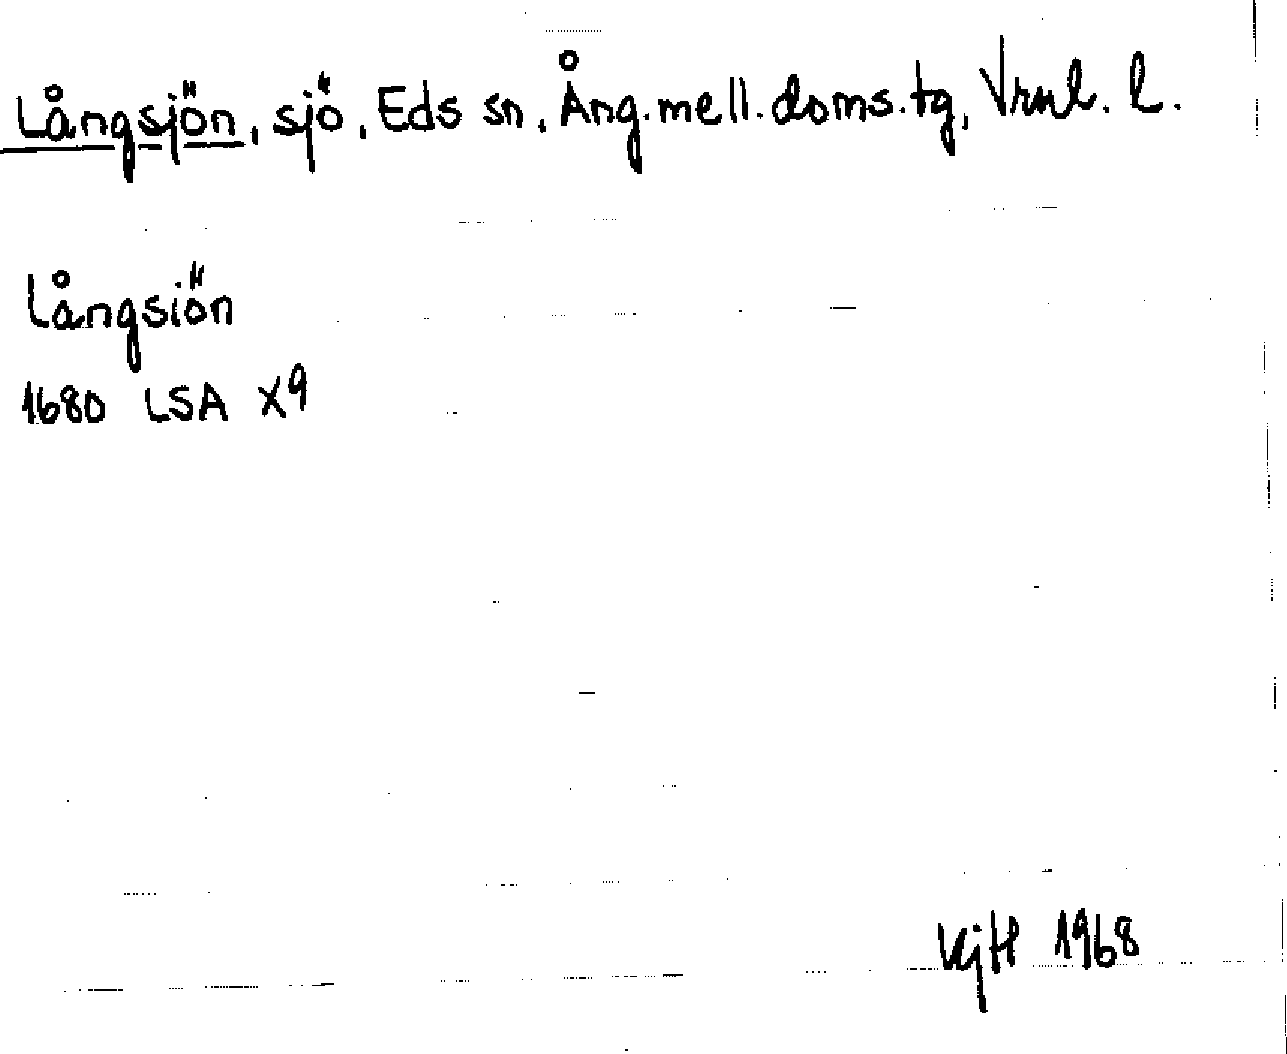 Långsjön, sjö, Eds sn, Ång.mell.doms.tg, Vrml. l.
Långsiön
1680 LSA X9
KjH 1968